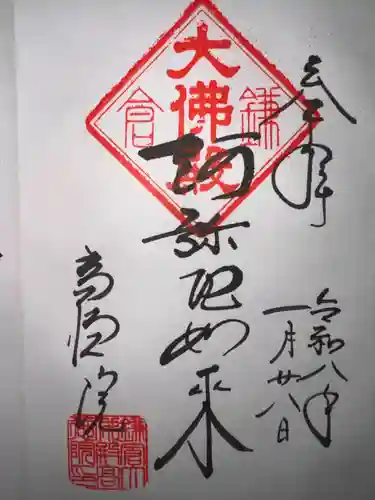 奉拝
令和八年
一月廿八日
鎌倉
大佛殿
阿弥陀如来
高徳院